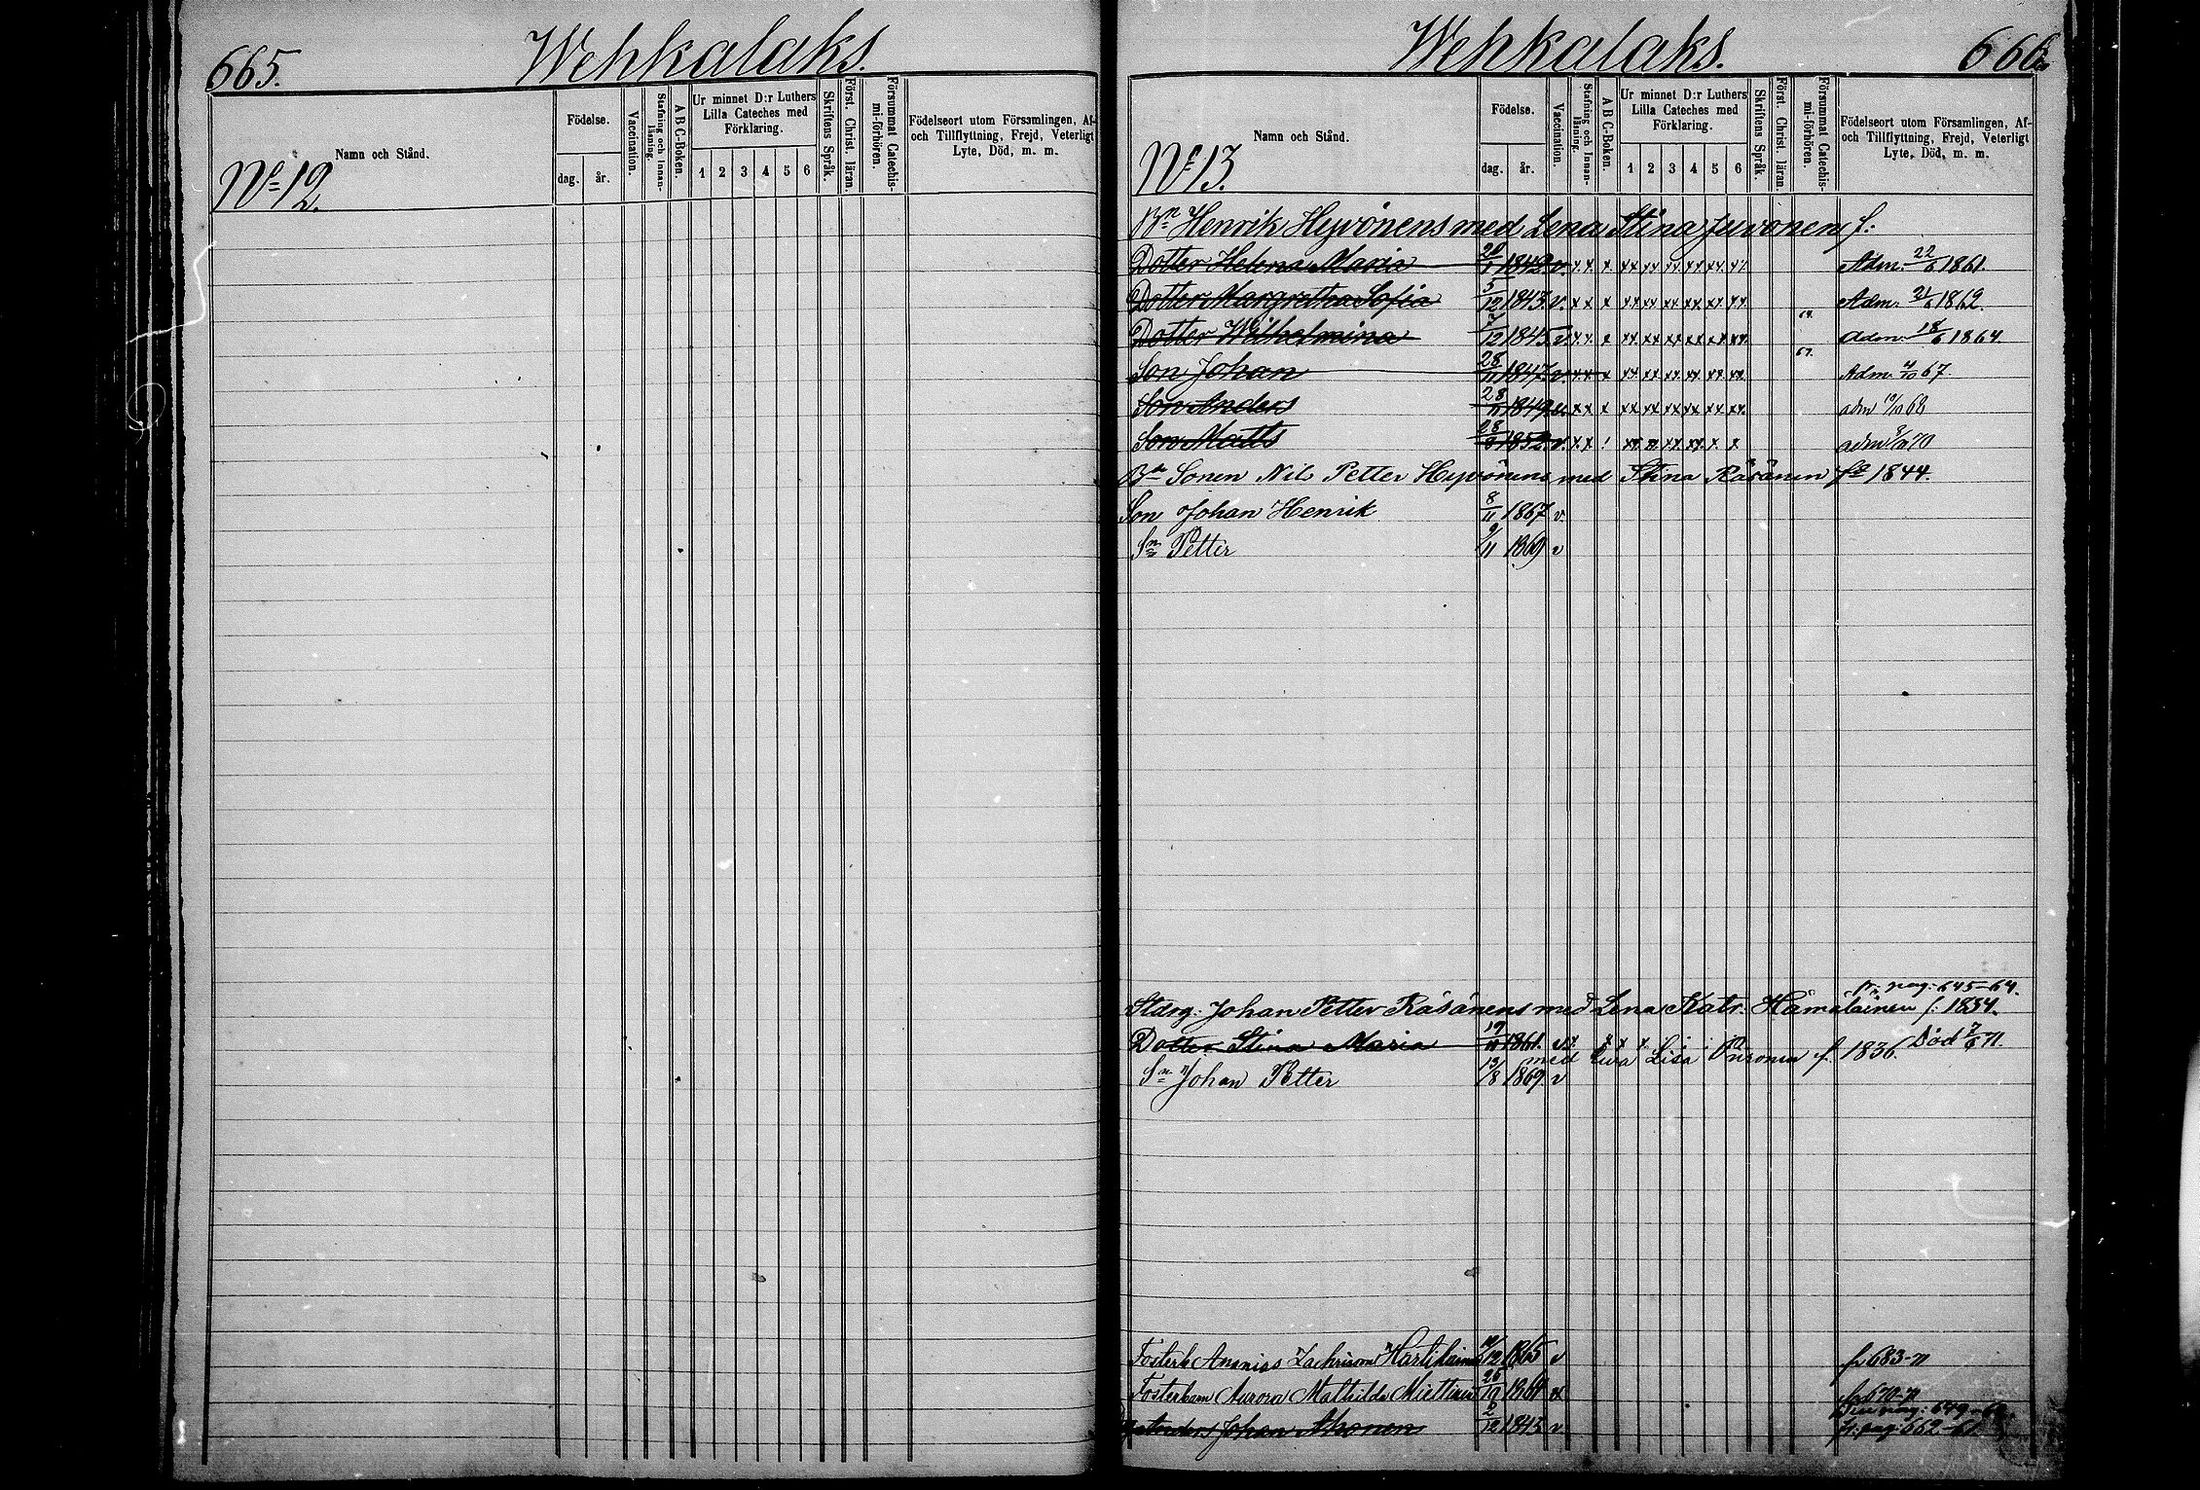 665. Wehkalaks.
Namn och Stånd.
Födelse.
dag. år.
Vaccination.
Stafning och Innan-läsning.
A B C-Boken.
Ur minnet D:r Luthers
Lilla Cateches med
Förklaring.
1 2 3 4 5 6
Skriftens Språk.
Först. Christ. läran.
Försummat Catechis-mi-förhören.
Födelseort utom Församlingen, Af-
och Tillflyttning, Frejd, Veterligt
Lyte, Död, m. m.
N:12.
Wehkalaks. 666.
Namn och Stånd.
Födelse.
dag. år.
Vaccination.
Stafning och Innan-läsning.
A B C-Boken.
Ur minnet D:r Luthers
Lilla Cateches med
Förklaring.
1 2 3 4 5 6
Skriftens Språk.
Först. Christ. läran.
Försummat Catechis-mi-förhören.
Födelseort utom Församlingen, Af-
och Tillflyttning, Frejd, Veterligt
Lyte, Död, m. m.
N:13.
Bn Henrik Hyvönens med Lena Stina Juvonen f:
Dotter Helena Maria 1842 v. x x x xx xx xx xx xx xx Adm. 22/6 1861.
Dotter Margretha Sofia 5/12 1843 v. x x x xx xx xx xx xx xx Adm. 21/6 1862.
Dotter Wilhelmina 7/12 1845 v. x x x xx xx xx xx xx xx adm. 18/6 1864.
Son Johan 28/11 1847 v. x x x xx xx xx xx xx xx Adm. 67.
Son Anders 1849 v. x x x xx xx xx xx xx xx adm 68
Son Matts 28/9 1852 v. x x xx xx xx x x adm 70
Bn Sonen Nils Petter Hyvönens med Stina Räsänen fd 1844.
Son Johan Henrik 8/11 1867 v
Sn Petter 9/11 1869 v
fr. pag: 645-64.
Stärg: Johan Petter Räsänens med Lena Katr. Hämäläinen f: 1834.
Dotter Stina Maria 1861. Död 71.
med Eva Lisa f. 1836.
Sn Johan Petter 13/8 1869 v
Ananias Hartikainen 12 1865 v fr 683-71
Fosterbarn Aurora Mathilda Miettinen v fr 670-71
Johan Ahonen 2/12 1843 v. fr. pag: 662-61.